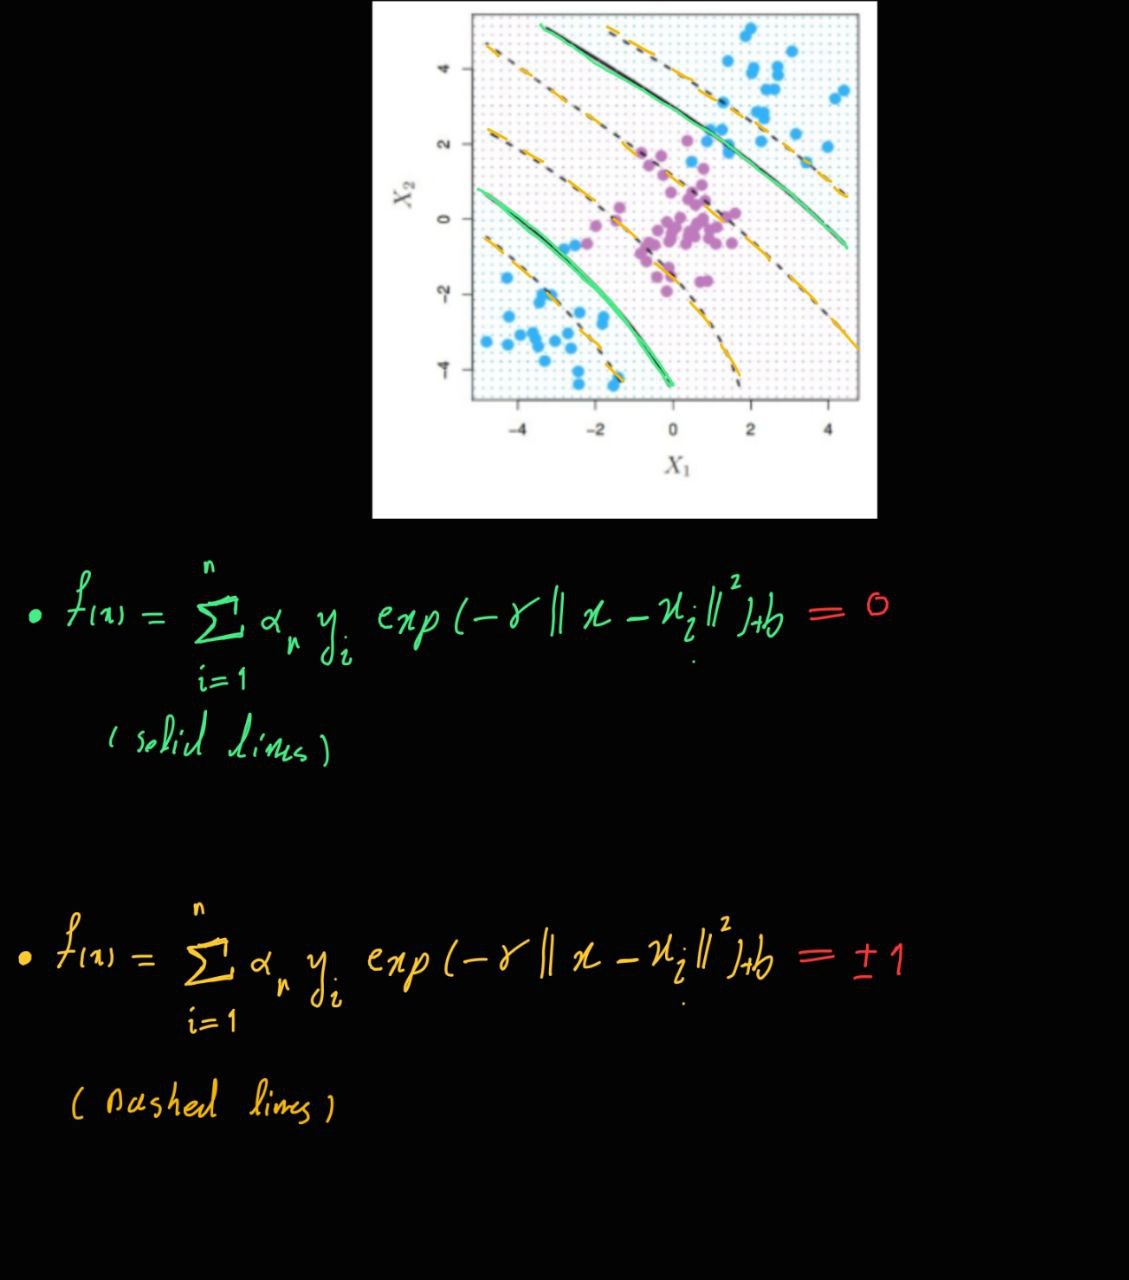 4
2
0
−2
−4
X₂
−4 −2 0 2 4
X₁
• f(x) = Σ_{i=1}^{n} α_n y_i exp(−γ‖x − x_i‖²)+b = 0
(solid lines)
• f(x) = Σ_{i=1}^{n} α_n y_i exp(−γ‖x − x_i‖²)+b = ±1
(Dashed lines)